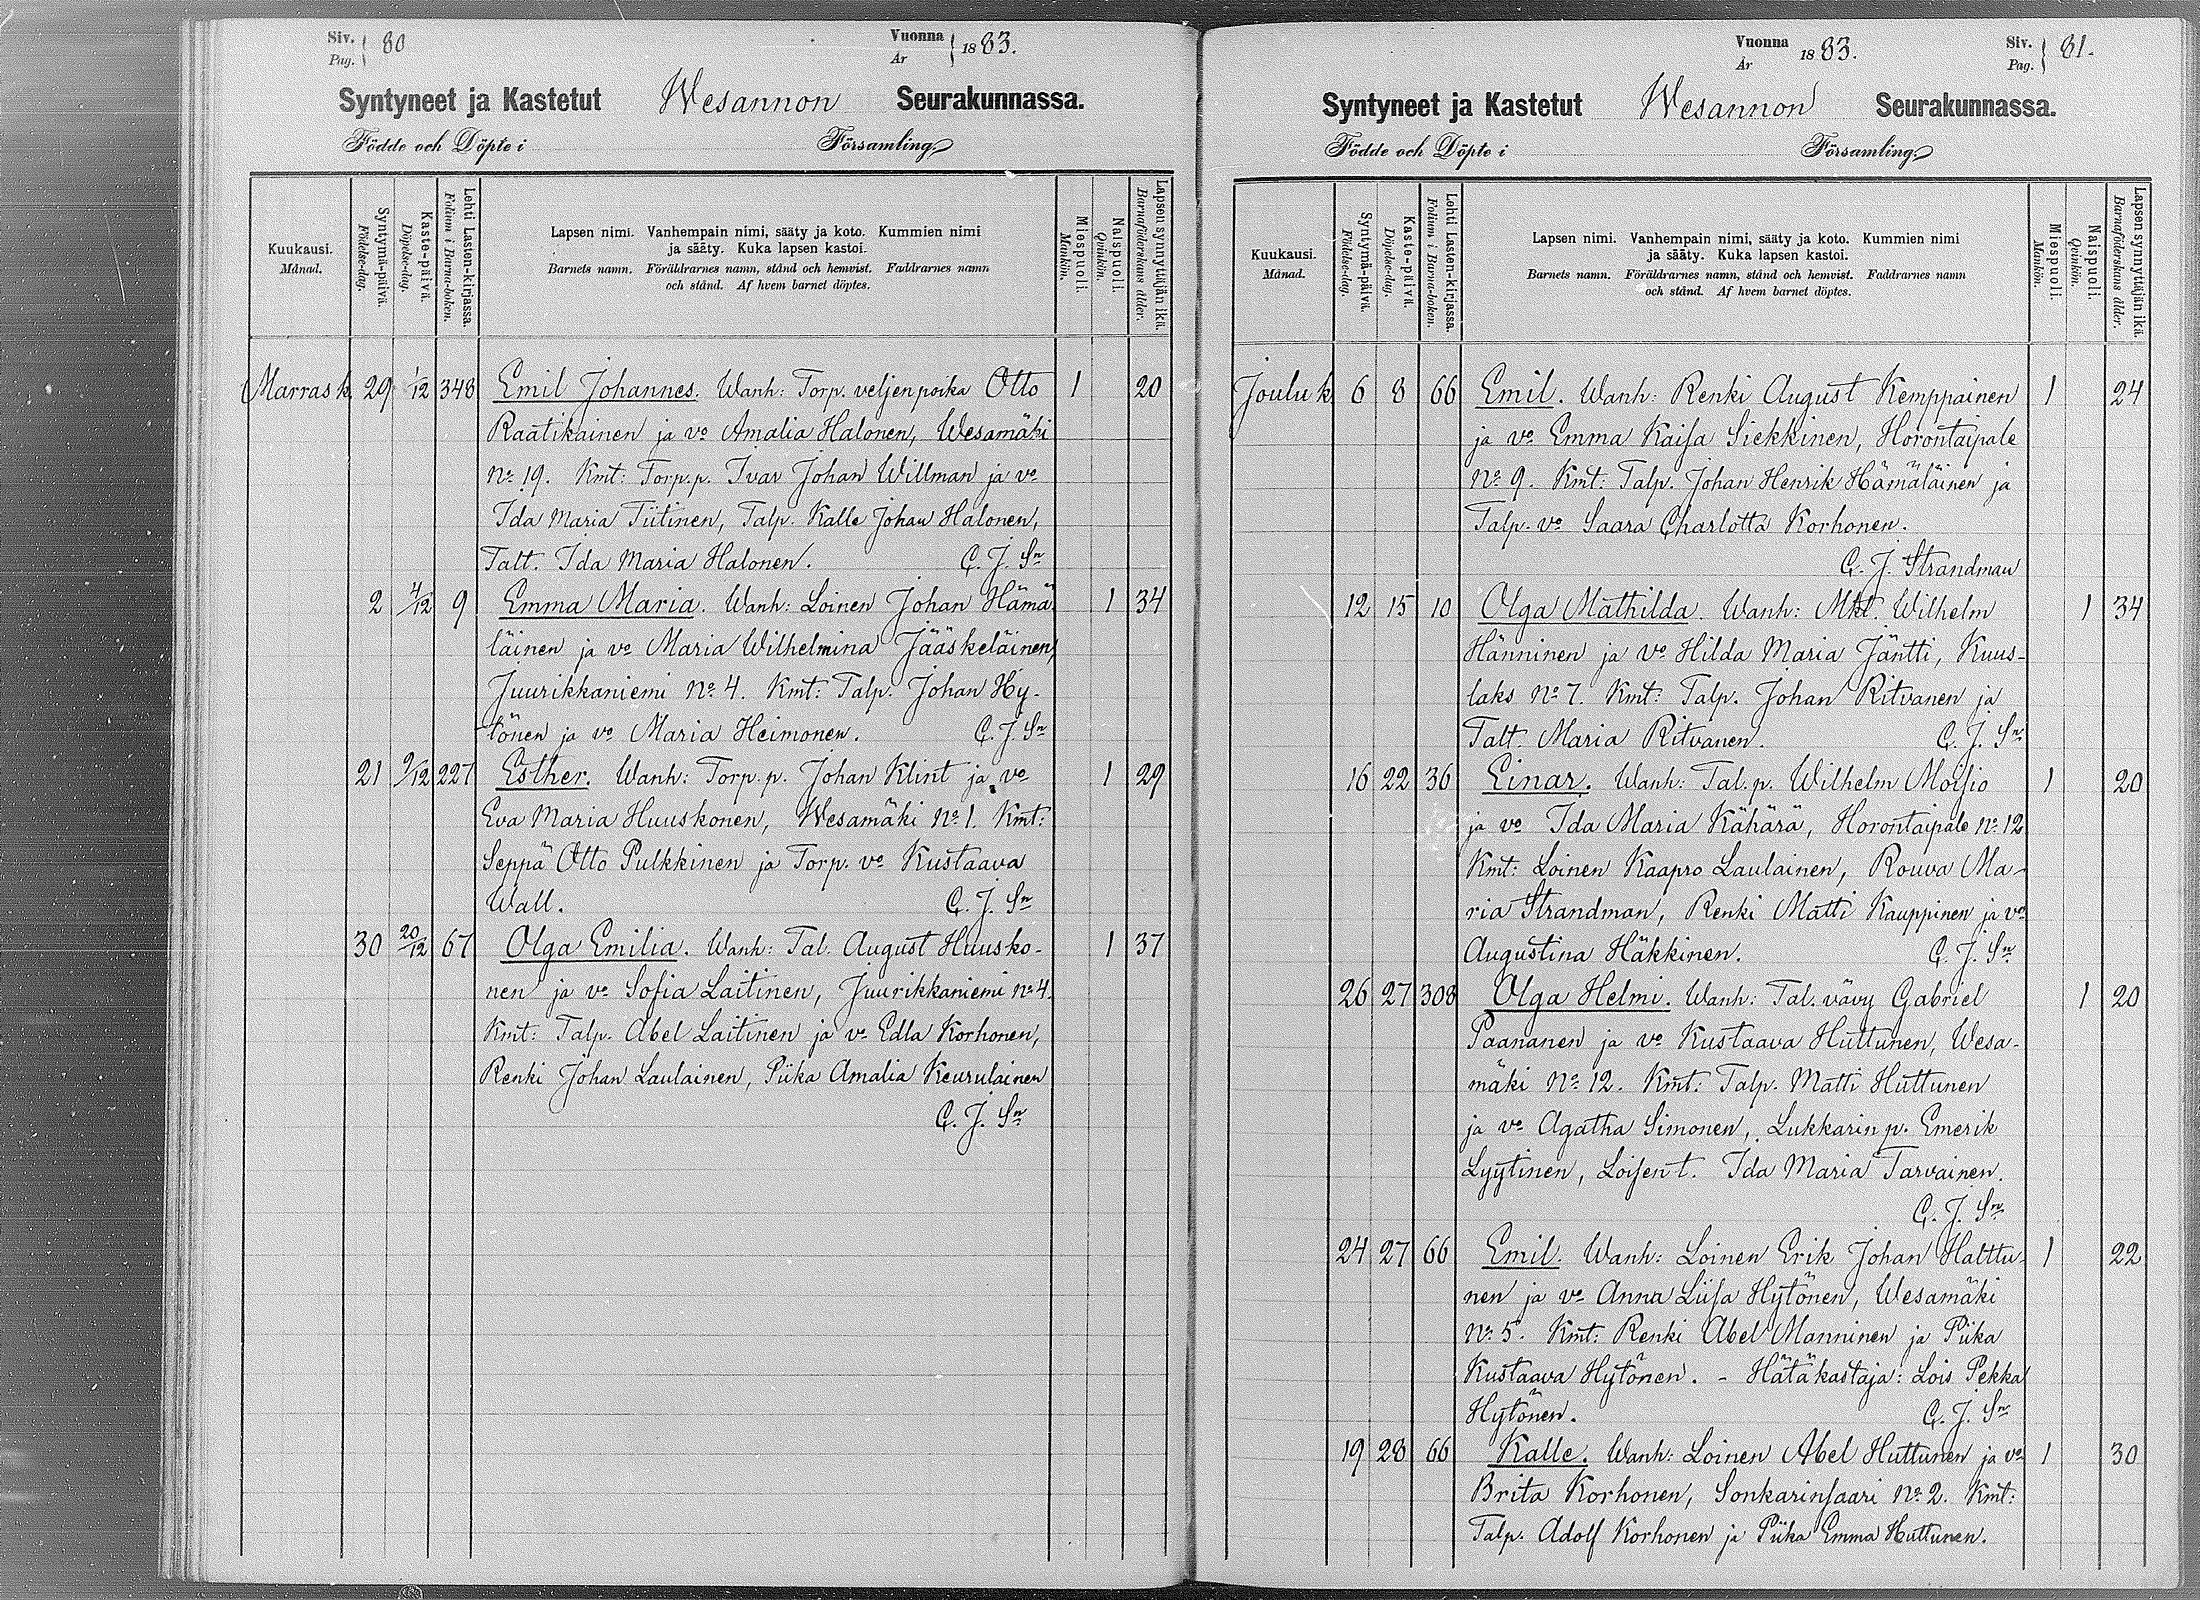 Siv. Pag. 80
Vuonna År 1883.
Syntyneet ja Kastetut Wesannon Seurakunnassa.
Födde och Döpte i Församling.
Kuukausi. Månad.
Syntymä-päivä. Födelse-dag.
Kaste-päivä. Döpelse-dag.
Lehti Lasten-kirjassa. Folium i Barna-boken.
Lapsen nimi. Vanhempain nimi, sääty ja koto. Kummien nimi
ja sääty. Kuka lapsen kastoi.
Barnets namn. Föräldrarnes namn, stånd och hemvist. Faddrarnes namn
och stånd. Af hvem barnet döptes.
Miespuoli. Mankön.
Naispuoli. Qvinkön.
Lapsen synnyttäjän ikä. Barnaföderskans ålder.
Marrask. 29 1/12 348 Emil Johannes. Wanh: Torp. veljenpoika Otto 1 20
Raatikainen ja vo Amalia Halonen, Wesamäki
No 19. Kmt: Torp.p. Ivar Johan Willman ja vo
Ida Maria Tiitinen, Talp. Kalle Johan Halonen,
Talt. Ida Maria Halonen. C. J. Sn
2 4/12 9 Emma Maria. Wanh: Loinen Johan Hämä 1 34
läinen ja vo Maria Wilhelmina Jääskeläinen,
Juurikkaniemi No 4. Kmt: Talp. Johan Hy-
tönen ja vo Maria Heimonen. C. J. Sn
21 9/12 227 Esther. Wanh: Torp. p. Johan Klint ja vo 1 29
Eva Maria Huuskonen, Wesamäki No 1. Kmt:
Seppä Otto Pulkkinen ja Torp. vo Kustaava
Wall. C. J. Sn
30 20/12 67 Olga Emilia. Wanh: Tal. August Huusko- 1 37
nen ja vo Sofia Laitinen, Juurikkaniemi No 4.
Kmt: Talp. Abel Laitinen ja vo Edla Korhonen,
Renki Johan Laulainen, Piika Amalia Keurulainen
C. J. Sn
Vuonna År 1883.
Siv. Pag. 81.
Syntyneet ja Kastetut Wesannon Seurakunnassa.
Födde och Döpte i Församling.
Kuukausi. Månad.
Syntymä-päivä. Födelse-dag.
Kaste-päivä. Döpelse-dag.
Lehti Lasten-kirjassa. Folium i Barna-boken.
Lapsen nimi. Vanhempain nimi, sääty ja koto. Kummien nimi
ja sääty. Kuka lapsen kastoi.
Barnets namn. Föräldrarnes namn, stånd och hemvist. Faddrarnes namn
och stånd. Af hvem barnet döptes.
Miespuoli. Mankön.
Naispuoli. Qvinkön.
Lapsen synnyttäjän ikä. Barnaföderskans ålder.
Jouluk 6 8 66 Emil. Wanh: Renki August Kemppainen 1 24
ja vo Emma Kaisa Siekkinen, Horontaipale
No 9. Kmt: Talp. Johan Henrik Hämäläinen ja
Talp. vo Saara Charlotta Korhonen.
C. J. Strandman
12 15 10 Olga Mathilda. Wanh: Mkt. Wilhelm 1 34
Hänninen ja vo Hilda Maria Jäntti, Kuus-
laks No 7. Kmt: Talp. Johan Ritvanen ja
Talt. Maria Ritvanen. C. J. Sn
16 22 36 Einar. Wanh: Tal. p. Wilhelm Moisio 1 20
ja vo Ida Maria Kähärä, Horontaipale No 12
Kmt: Loinen Kaapro Laulainen, Rouva Ma-
ria Strandman, Renki Matti Kauppinen ja vo
Augustina Häkkinen. C. J. Sn
26 27 308 Olga Helmi. Wanh: Tal. vävy Gabriel 1 20
Paananen ja vo Kustaava Huttunen, Wesa-
mäki No 12. Kmt: Talp. Matti Huttunen
ja vo Agatha Simonen, Lukkarin p. Emerik
Lyytinen, Loisen t. Ida Maria Tarvainen.
C. J. Sn
24 27 66 Emil. Wanh: Loinen Erik Johan Halttu- 1 22
nen ja vo Anna Liisa Hytönen, Wesamäki
No 5. Kmt: Renki Abel Manninen ja Piika
Kustaava Hytönen. - Hätäkastaja: Lois Pekka
Hytönen. C. J. Sn
19 28 66 Kalle. Wanh: Loinen Abel Huttunen ja vo 1 30
Brita Korhonen, Sonkarinsaari No 2. Kmt:
Talp. Adolf Korhonen ja Piika Emma Huttunen.